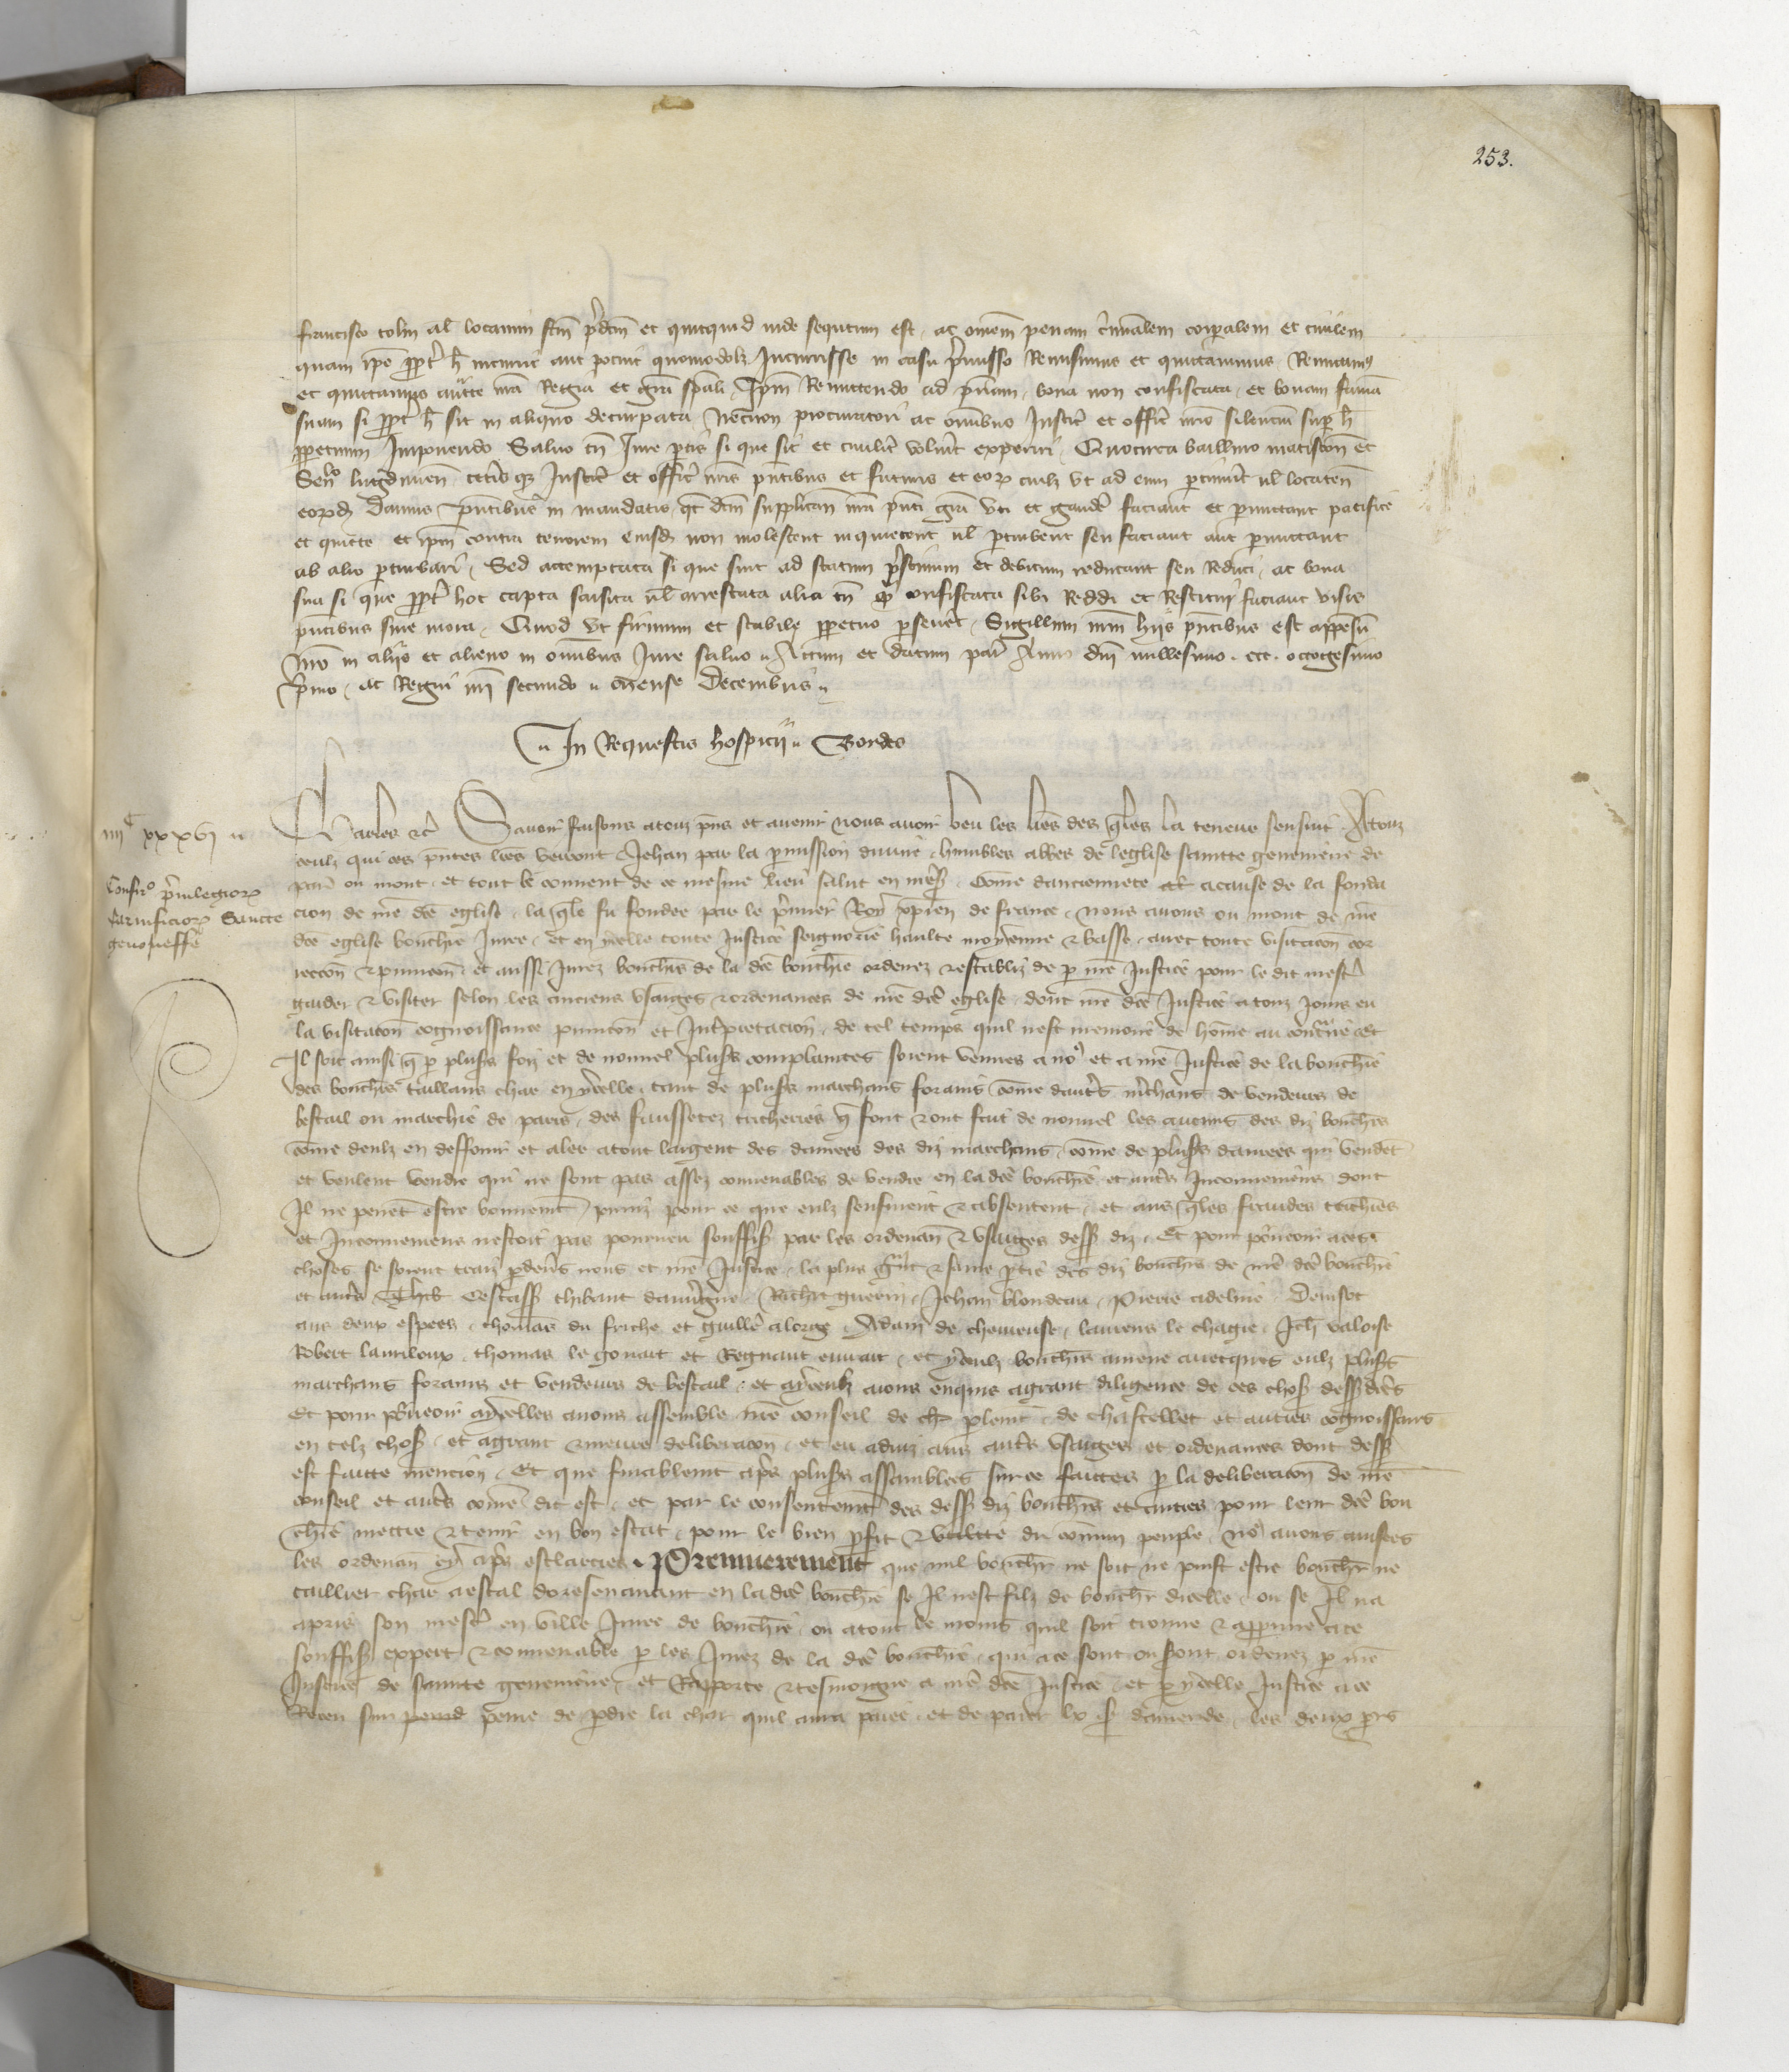 253.
francisco colin al̄ locatum fc̄m p̄dc̄m et quicquid inde sequtum est, ac omēm penam c̄minalem corp̄alem et civilem
quam ip̄e p̄pt̄ h̄ incurrit aut potuit quomodolz Incurrisse in casu p̄misso Remisimus et quictavimus Remictimꝰ
et quictamus auct̄te nr̄a Regia et gr̄a sp̄ali, Ip̄m Remictendo ad pr̄iam, bona non confiscata, et bonam famā
suam si p̄pt̄ h̄ sit in aliquo decurpata Necnon procuratori ac om̄ibus Justic̄ et offic̄ nr̄is silencium sup̄ h̄
p̄petuum Imponendo Salvo tn̄ Iure p̄tis si que sit et civilit̄ volūit experiri, Quocirca baillivo matisconēn et
Sen̄lo lugdunēn cet̄isqꝫ Justic̄ et offic̄ nr̄is pn̄tibus et futuris et eorꝝ cuilz ut ad eum p̄tinūit ul̄ locaten̄
eorꝝdꝫ Damus pn̄tibus in mandatis, qt̄ dc̄m supplican̄ nr̄a pn̄ti gr̄a uti et gaudē faciant et p̄mictant pacifice
et quiete et ip̄m contra tenorem eiusdꝫ non molestent inquietent ul̄ p̄turbent seu faciant aut p̄mictant
ab alio p̄turbari, Sed actemptata si que sint ad statum p̄stinum et debitum reducant seu Reduci, ac bona
sua si que p̄pt̄ hoc capta saisita ul̄ arrestata alia tn̄ confiscata sibi Reddi et Restitui faciant visis
pn̄tibus sine mora, Quod ut firmum et stabile p̄petuo p̄sevēt, Sigillum nr̄m hiis pn̄tibus est appēsū
Nr̄o in aliis et alieno in om̄ibus Iure salvo. Actum et datum par̄ Anno dn̄i millesimo. ccc. octogesimo
p̄mo, ac Regni nr̄i secundo. Mense Decembris.
In Requestis hospicii. Gordes
iiiiᶜ xxxvi
Confir̄o p̄vilegiorꝝ
carnificiorꝝ Sancte
genoveffe
Charles et̄c Savoir faisons a touz pn̄s et avenir nous avoir veu les lr̄es des q̄les la teneur sensuit. A touz
ceulz qui ces pn̄tes lr̄es verront Jehan par la p̄mission divine humbles abbes de leglise saintte genevieve de
par̄ ou mont, et tout le convent de ce mesme lieu salut en nr̄e sꝰ. Cōme danciennete et a cause de la fonda
cion de nr̄e dc̄e eglise, la q̄le fu fondee par le p̄mier Roy xp̄ien de france, nous avons ou mont de nr̄e
dc̄e eglise bouch̄ie Juree, et en ycelle toute Justice seignorie haulte moyenne et basse, avec toute visitacōn cor
reccōn et punicōn, et aussi Jurez bouch̄rs de la dc̄e bouch̄ie ordenez et establiz de p̄ nr̄e Justice pour le dit mest̄
garder et visiter selon les anciens usaiges et ordenances de nr̄e dc̄e eglise, dont nr̄e dc̄e Justice a touz jours eu
la visitacōn cognoissance punicōn et Int̄pretacion, de tel temps quil nest memoire de hōme au cont̄ire, Et
Il soit ainsi q̄ p̄ plus̄s foiz et de nouvel plus̄s complaintes soient venues a noꝰ et a nr̄e Justice de la bouch̄ie
des bouch̄rs taillans char en ycelle, tant de plus̄s marchans forains cōme daut̄s m̄chans de vendeurs de
bestail ou marchie de paris, des faussetez tricheries q̄ font et ont fait de nouvel les aucuns des diz bouch̄rs
cōme deulz en deffouir et aler atout largent des danrees des diz marchans, cōme de plus̄s danrees qui vendēt
et veulent vendre qui ne sont pas assez convenables de vendre en la dc̄e bouch̄ie, et aut̄s Inconveniens, dont
Il ne pevēt estre bonnemēt puniz pour ce que eulz senfuient et absentent, et aus q̄les fraudes trich̄ies
et Inconveniens nestoit pas pourveu souffis̄ par les ordenan̄ et usaiges dess̄ diz, Et pour po̅veoir a ces
choses se soient traiz p̄devers nous et nr̄e Justice, la plus gr̄nt et saine p̄tie des diz bouch̄rs de nr̄e dc̄e bouch̄ie
et aut̄s Cestass̄ thibaut dauv̄gne, Rich̄t guerin, Jehan blondeau, Pierre adeline, Denisot
aus deux espees, thomas du friche et guill̄e alorge, Adam de chevreuse, laurens le chagre, Jeh̄ valoise
Robert lamiloux, thomas le gouat et Regnaut euvrart, et yceulz bouch̄rs amene avecques eulz plus̄s
marchans forains et vendeurs de bestail, et a yceulz avons enquis a grant diligence de ces chos̄ dess̄ dc̄es
Et pour po̅veoir a ycelles avons assemble nr̄e conseil de p̄lemt̄, de chastellet et autres cognoissans
en telz chos̄, et a grant et meure deliberacōn, et eu adviz aus aut̄s usaiges et ordenances dont dess̄
est faitte mencion, Et que finablemt̄ ap̄s plus̄s assamblees sur ce faittes p̄ la deliberacōn de nr̄e
conseil et aut̄s cōme dit est, et par le consentemt̄ des dess̄ diz bouch̄rs et autres pour leur dc̄e bou
ch̄ie mectre et tenir en bon estat, pour le bien p̄fit et utilite du cōmun peuple, noꝰ avons avisees
les ordenan̄ cy ap̄s esclarcies. Premierement que nul bouch̄r ne soit ne puist estre bouch̄r ne
taillier char a estal doresenavant en la dc̄e bouch̄ie se Il nest filz de bouch̄r dicelle, ou se Il na
apris son mest̄ en ville Juree de bouch̄ie, ou atout le moins quil soit trouve et app̄uve a ce
souffis̄ expert et convenable p̄ les Jurez de la dc̄e bouch̄ie, qui a ce sont ou s̄ont ordenez p̄ nr̄e
Justice de saintte genevieve, et Rapporte et tesmoigne a nr̄e dc̄e Justice, et p̄ ycelle Justice a ce
Receu sur peine de p̄dre la char quil aura paree, et de paier lx s̄ damende, les deux p̄rs